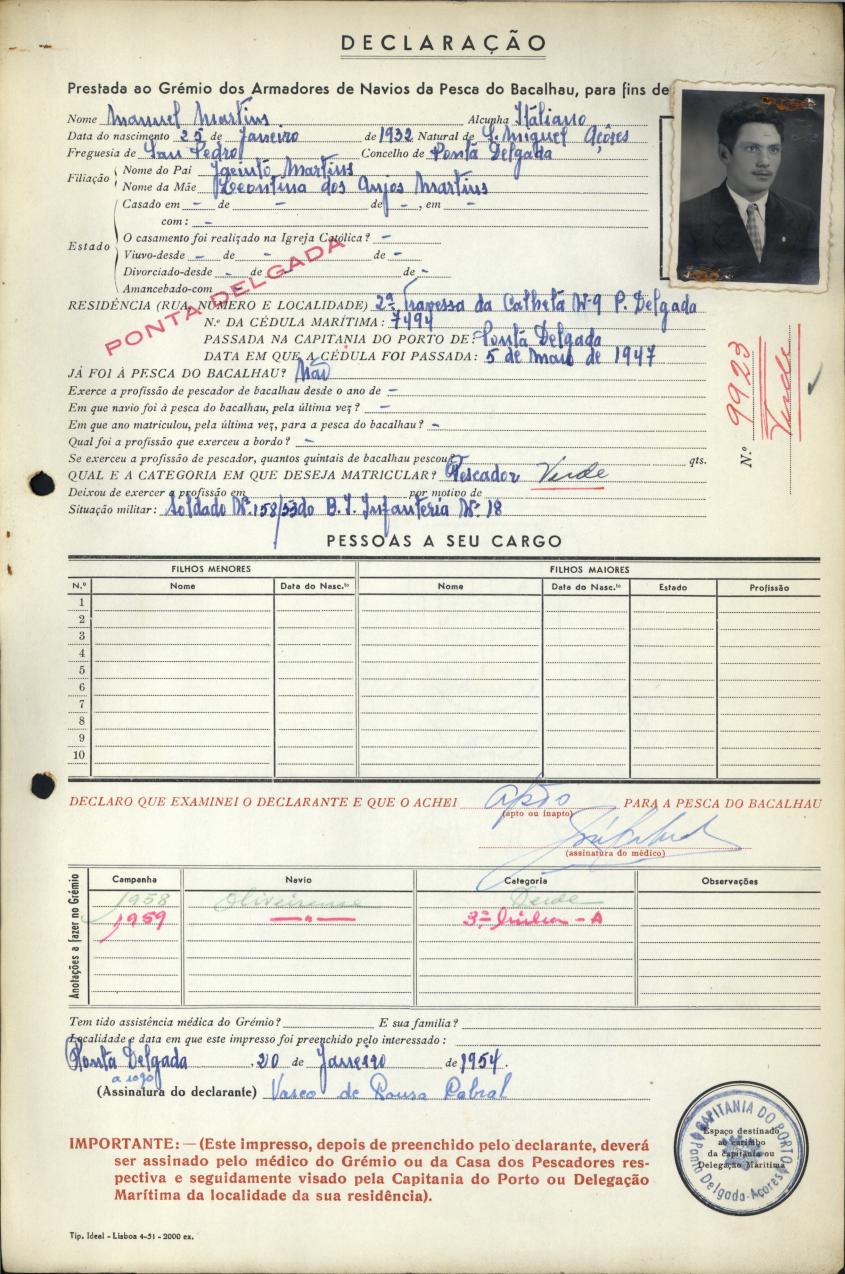 DECLARAÇÃO
Prestada ao Grémio dos Armadores de Navios da Pesca do Bacalhau, para fins de
Nome Manuel Martins Alcunha Italiano
Data do nascimento 25 de Janeiro de 1932 Natural de S. Miguel Açôres
Freguesia de San Pedro Concelho de Ponta Delgada
Filiação
Nome do Pai Jacinto Martins
Nome da Mãe Leontina dos Anjos Martins
Estado
Casado em - de - de - , em -
com: -
O casamento foi realizado na Igreja Católica? -
Viuvo-desde - de - de -
Divorciado-desde - de - de -
Amancebado-com -
PONTA DELGADA
RESIDÊNCIA (RUA, NÚMERO E LOCALIDADE) 2ª Travessa da Calheta Nº 9 P. Delgada
N.º DA CÉDULA MARÍTIMA: 7494
PASSADA NA CAPITANIA DO PORTO DE: Ponta Delgada
DATA EM QUE A CÉDULA FOI PASSADA: 5 de Maio de 1947
JÁ FOI À PESCA DO BACALHAU? Não
Exerce a profissão de pescador de bacalhau desde o ano de -
Em que navio foi à pesca do bacalhau, pela última vez? -
Em que ano matriculou, pela última vez, para a pesca do bacalhau? -
Qual foi a profissão que exerceu a bordo? -
Se exerceu a profissão de pescador, quantos quintais de bacalhau pescou qts.
QUAL E A CATEGORIA EM QUE DESEJA MATRICULAR? Pescador Verde
Deixou de exercer a profissão em por motivo de
Situação militar: Soldado Nº. 158/53 do B. I. Infanteria Nº. 18
N.º 9923
Verde
PESSOAS A SEU CARGO
FILHOS MENORES FILHOS MAIORES
N.º Nome Data do Nasc.to Nome Data do Nasc.to Estado Profissão
1
2
3
4
5
6
7
8
9
10
DECLARO QUE EXAMINEI O DECLARANTE E QUE O ACHEI apto PARA A PESCA DO BACALHAU
(apto ou inapto)
(assinatura do médico)
Anotações a fazer no Grémio
Campanha Navio Categoria Observações
1958 Oliveirense Verde
1959 — " — 3ª - A
Tem tido assistência médica do Grémio? E sua família?
Localidade e data em que este impresso foi preenchido pelo interessado:
Ponta Delgada, 20 de Janeiro de 1954.
a rogo
(Assinatura do declarante) Vasco de Sousa Cabral
IMPORTANTE: — (Este impresso, depois de preenchido pelo declarante, deverá
ser assinado pelo médico do Grémio ou da Casa dos Pescadores res-
pectiva e seguidamente visado pela Capitania do Porto ou Delegação
Marítima da localidade da sua residência).
CAPITANIA DO PORTO
Ponta Delgada-Açores
Espaço destinado
ao carimbo
da capitania ou
Delegação Marítima
Tip. Ideal - Lisboa 4-51 - 2000 ex.